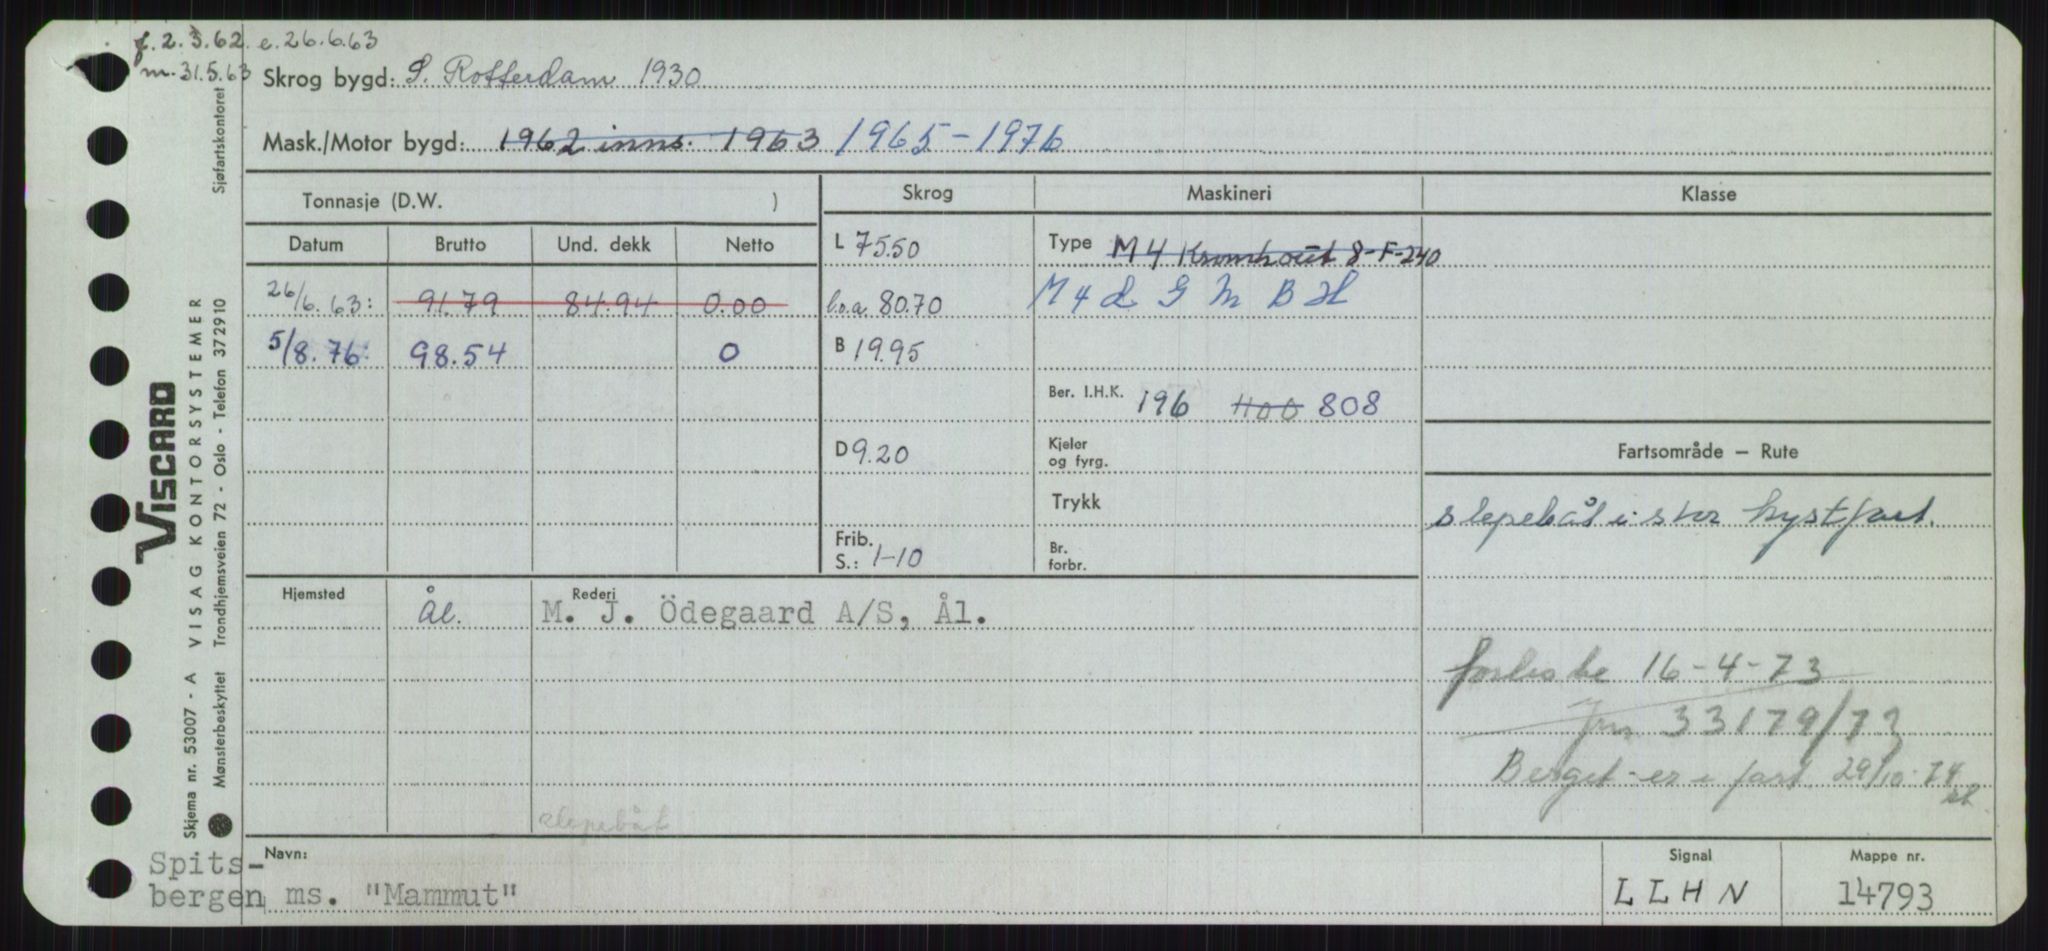 f. 2.3.62. e. 26.6.63
m. 31.5.63
Skrog bygd: S. Rotterdam 1930
Mask./Motor bygd: 1962 inns. 1963 1965-1976
Tonnasje (D.W. )
Skrog
Maskineri
Klasse
Datum Brutto Und. dekk Netto
L 75.50
Type M4 Kromhout 8-F-240
26/6.63: 91.79 84.94 0.00
l.o.a. 80.70
M4 G M B H
5/8.76: 98.54 0
B 19.95
Ber. I.H.K. 196 400 808
D 9.20
Kjeler
og fyrg.
Fartsområde — Rute
Trykk
slepebåt i stor kystfart.
Frib.
S.: 1-10
Br.
forbr.
Hjemsted Ål.
Rederi
M. J. Ödegaard A/S, Ål.
forliste 16-4-73
Jnr 33179/73
Berget - er i fart 29/10.74
slepebåt
Navn:
Spits-
bergen ms. "Mammut"
Signal
LLHN
Mappe nr.
14793
VISCARD
Skjema nr. 53007 - A VISAG KONTORSYSTEMER
Mønsterbeskyttet Trondhjemsveien 72 - Oslo - Telefon 372910 Sjøfartskontoret